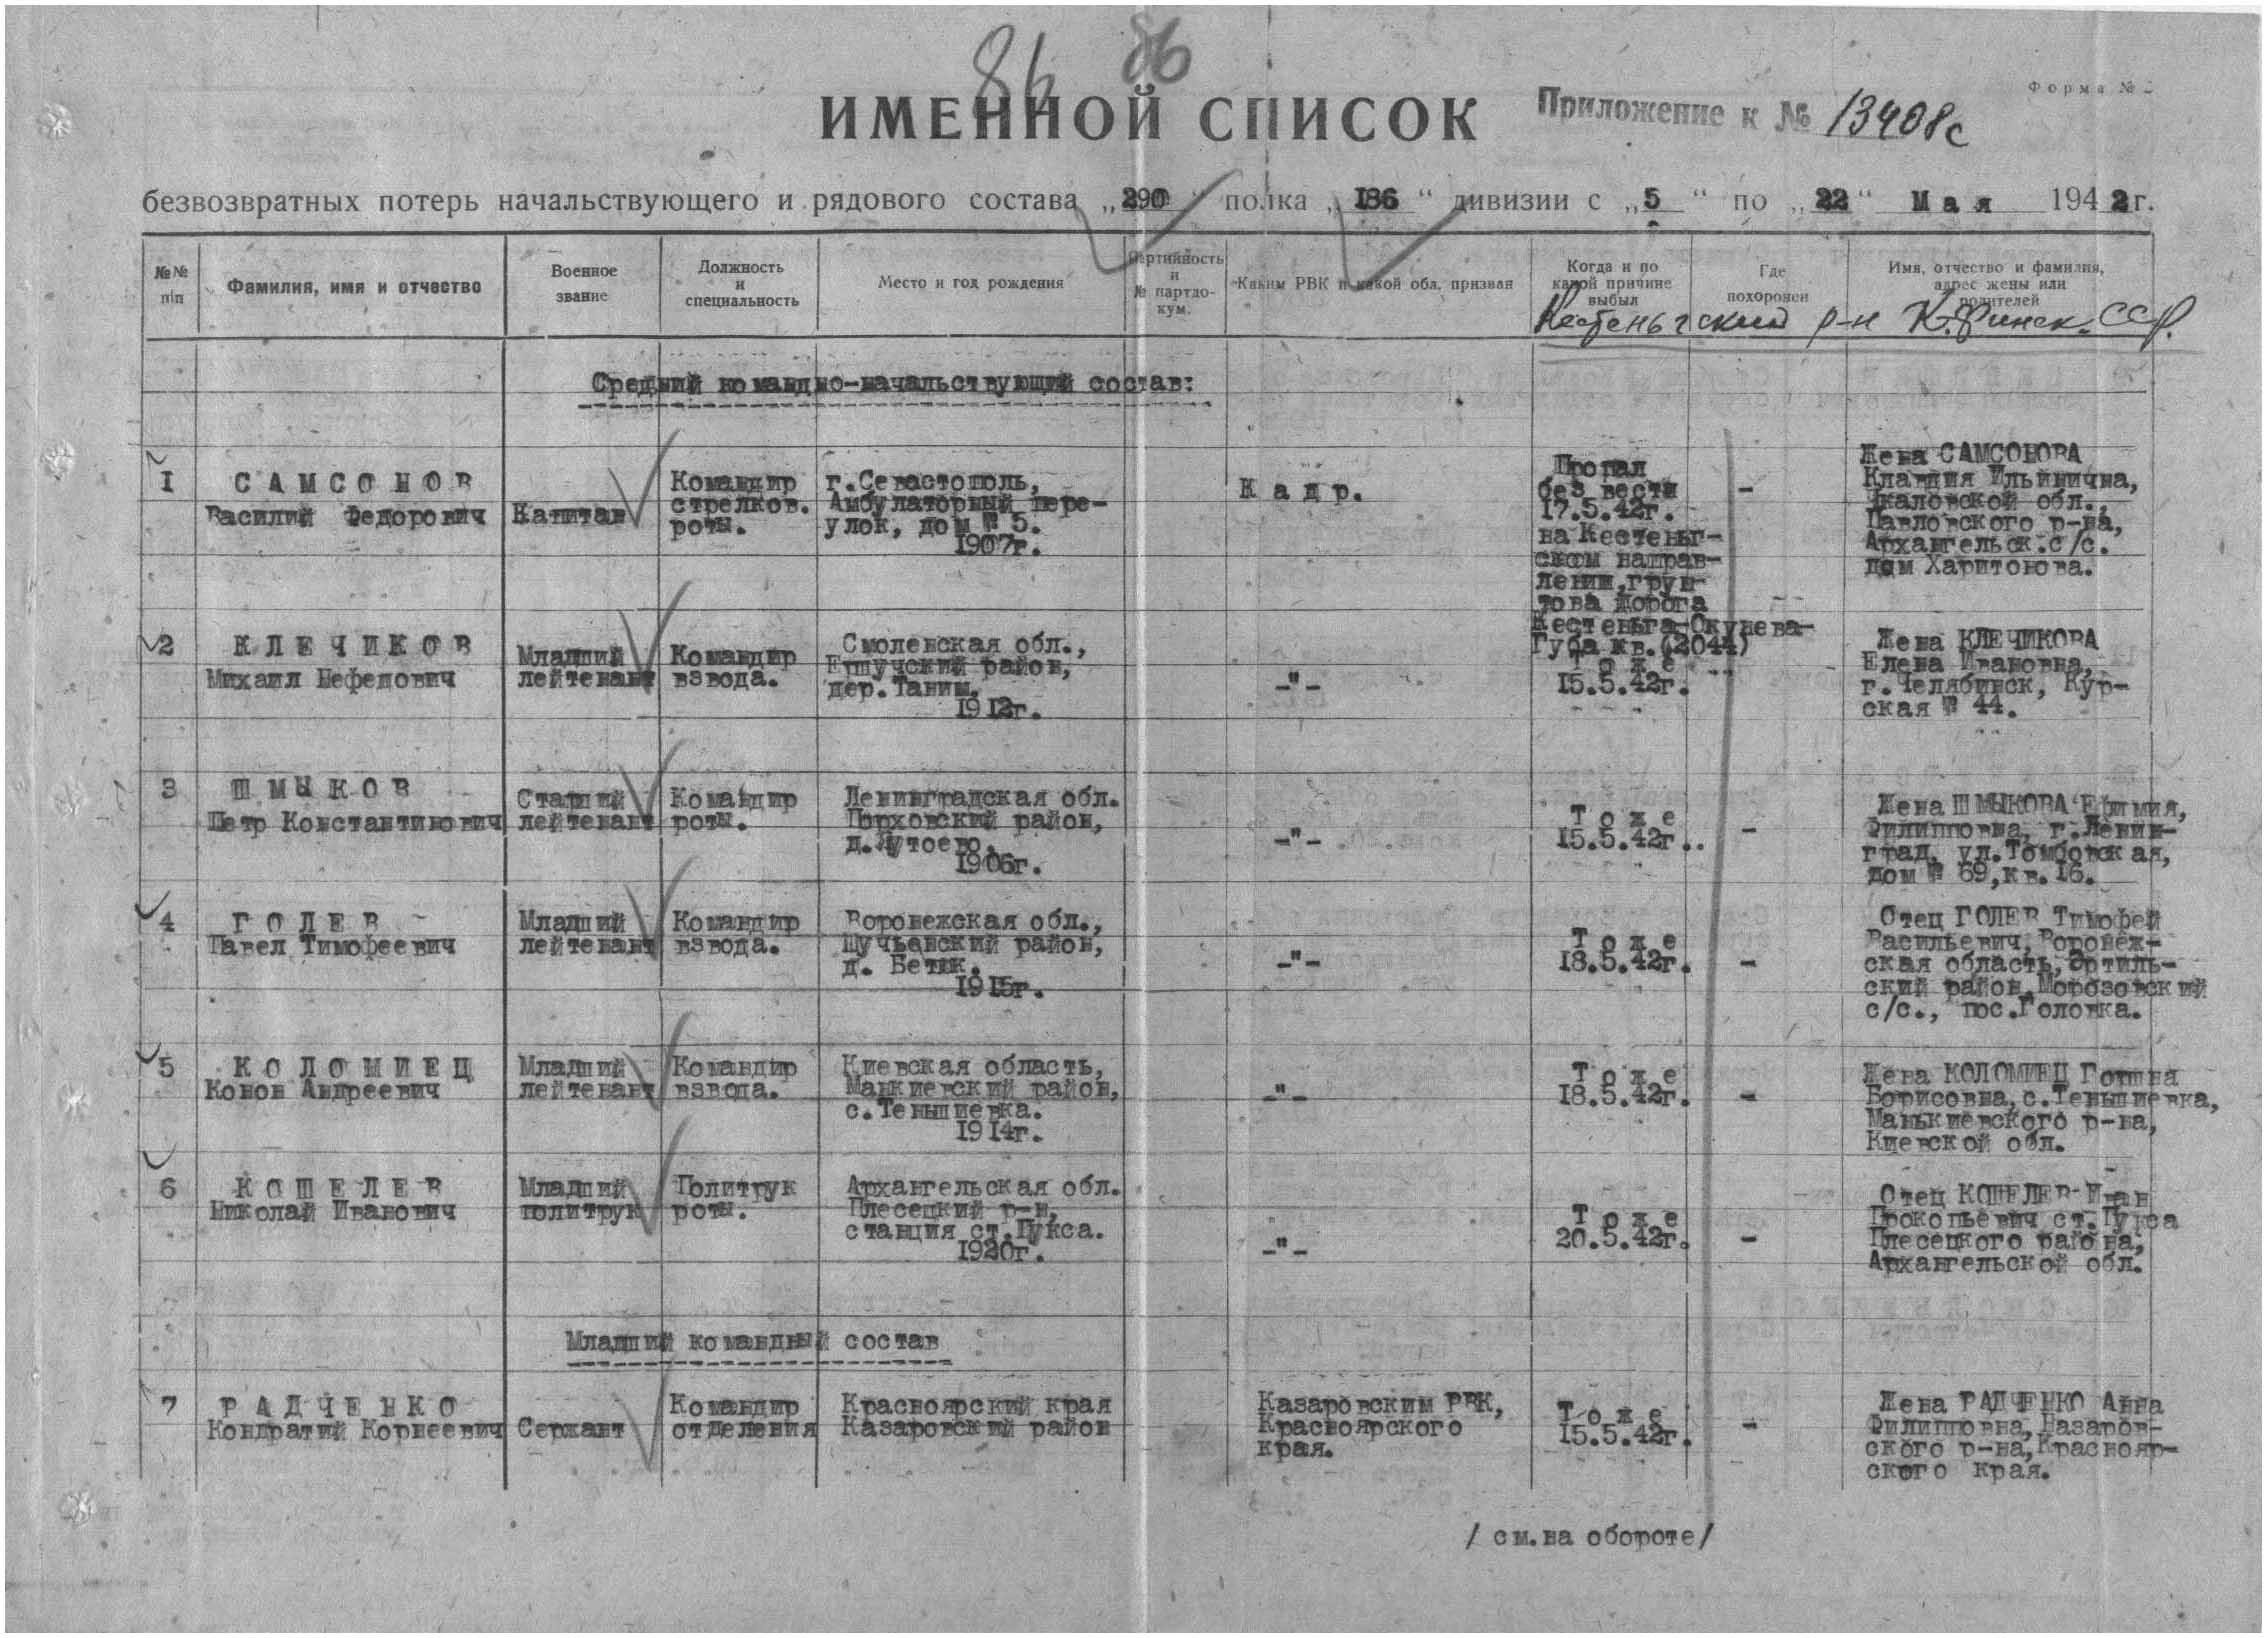 86 86
Форма №
ИМЕННОЙ СПИСОК
Приложение к № 13408с
безвозвратных потерь начальствующего и рядового состава „290“ полка „186“ дивизии с „5“ по „22“ Мая 1942 г.
№№ п/п
Фамилия, имя и отчество
Военное звание
Должность и специальность
Место и год рождения
Партийность и № партдокум.
Каким РВК и какой обл. призван
Когда и по какой причине выбыл
Где похоронен
Имя, отчество и фамилия, адрес жены или родителей
Кестеньгский р-н К.Финск. ССР.
Средний командно-начальствующий состав:
1
САМСОНОВ
Василий Федорович
Капитан
Командир
стрелков.
роты.
г.Севастополь,
Амбулаторный пере-
улок, дом № 5.
1907г.
Кадр.
Пропал
без вести
17.5.42г.
на Кестеньг-
ском направ-
лении,грун-
това дорога
Кестеньга-Окунева-
Губа кв.(2044)
-
Жена САМСОНОВА
Клавдия Ильинична,
Чкаловской обл.,
Павловского р-на,
Архангельск.с/с.
дом Харитонова.
2
КЛЕЧИКОВ
Михаил Нефедович
Младший
лейтенант
Командир
взвода.
Смоленская обл.,
Ершучский район,
дер.Таним.
1912г.
-"-
Тоже
15.5.42г.
Жена КЛЕЧИКОВА
Елена Ивановна,
г.Челябинск, Кур-
ская № 44.
3
ШМЫКОВ
Петр Константинович
Старший
лейтенант
Командир
роты.
Ленинградская обл.
Порховский район,
1906г.
-"-
Тоже
15.5.42г..
-
Жена ШМЫКОВА Ефимия,
Филипповна, г.Ленин-
град, ул.Томбовская,
дом № 69,кв.16.
4
ГОЛЕВ
Павел Тимофеевич
Младший
лейтенант
Командир
взвода.
Воронежская обл.,
Щучьенский район,
д. Бетяк.
1915г.
-"-
Тоже
18.5.42г.
-
Отец ГОЛЕВ Тимофей
Васильевич,Воронеж-
ская область,Эртиль-
ский район,Морозовский
с/с., пос.Головка.
5
КОЛОМИЕЦ
Конон Андреевич
Младший
лейтенант
Командир
взвода.
Киевская область,
Манкиевский район,
с.Теньшиевка.
1914г.
-"-
Тоже
18.5.42г.
-
Жена КОЛОМИЕЦ
Борисовна,с.Теньшиевка,
Манькиевского р-на,
Киевской обл.
6
КОШЕЛЕВ
Николай Иванович
Младший
политрук
Политрук
роты.
Архангельская обл.
Плесецкий р-н,
станция ст.Пукса.
1920г.
-"-
Тоже
20.5.42г.
-
Отец КОШЕЛЕВ Иван
Прокопьевич ст.Пукса
Плесецкого района,
Архангельской обл.
Младший командный состав
7
РАДЧЕНКО
Кондратий Корнеевич
Сержант
Командир
отделения
Красноярский края
Казаровский район
Казаровским РВК,
Красноярского
края.
Тоже
15.5.42г.
-
Жена РАДЧЕНКО Анна
Филипповна,Назаров-
ского р-на,Краснояр-
ского края.
/см.на обороте/